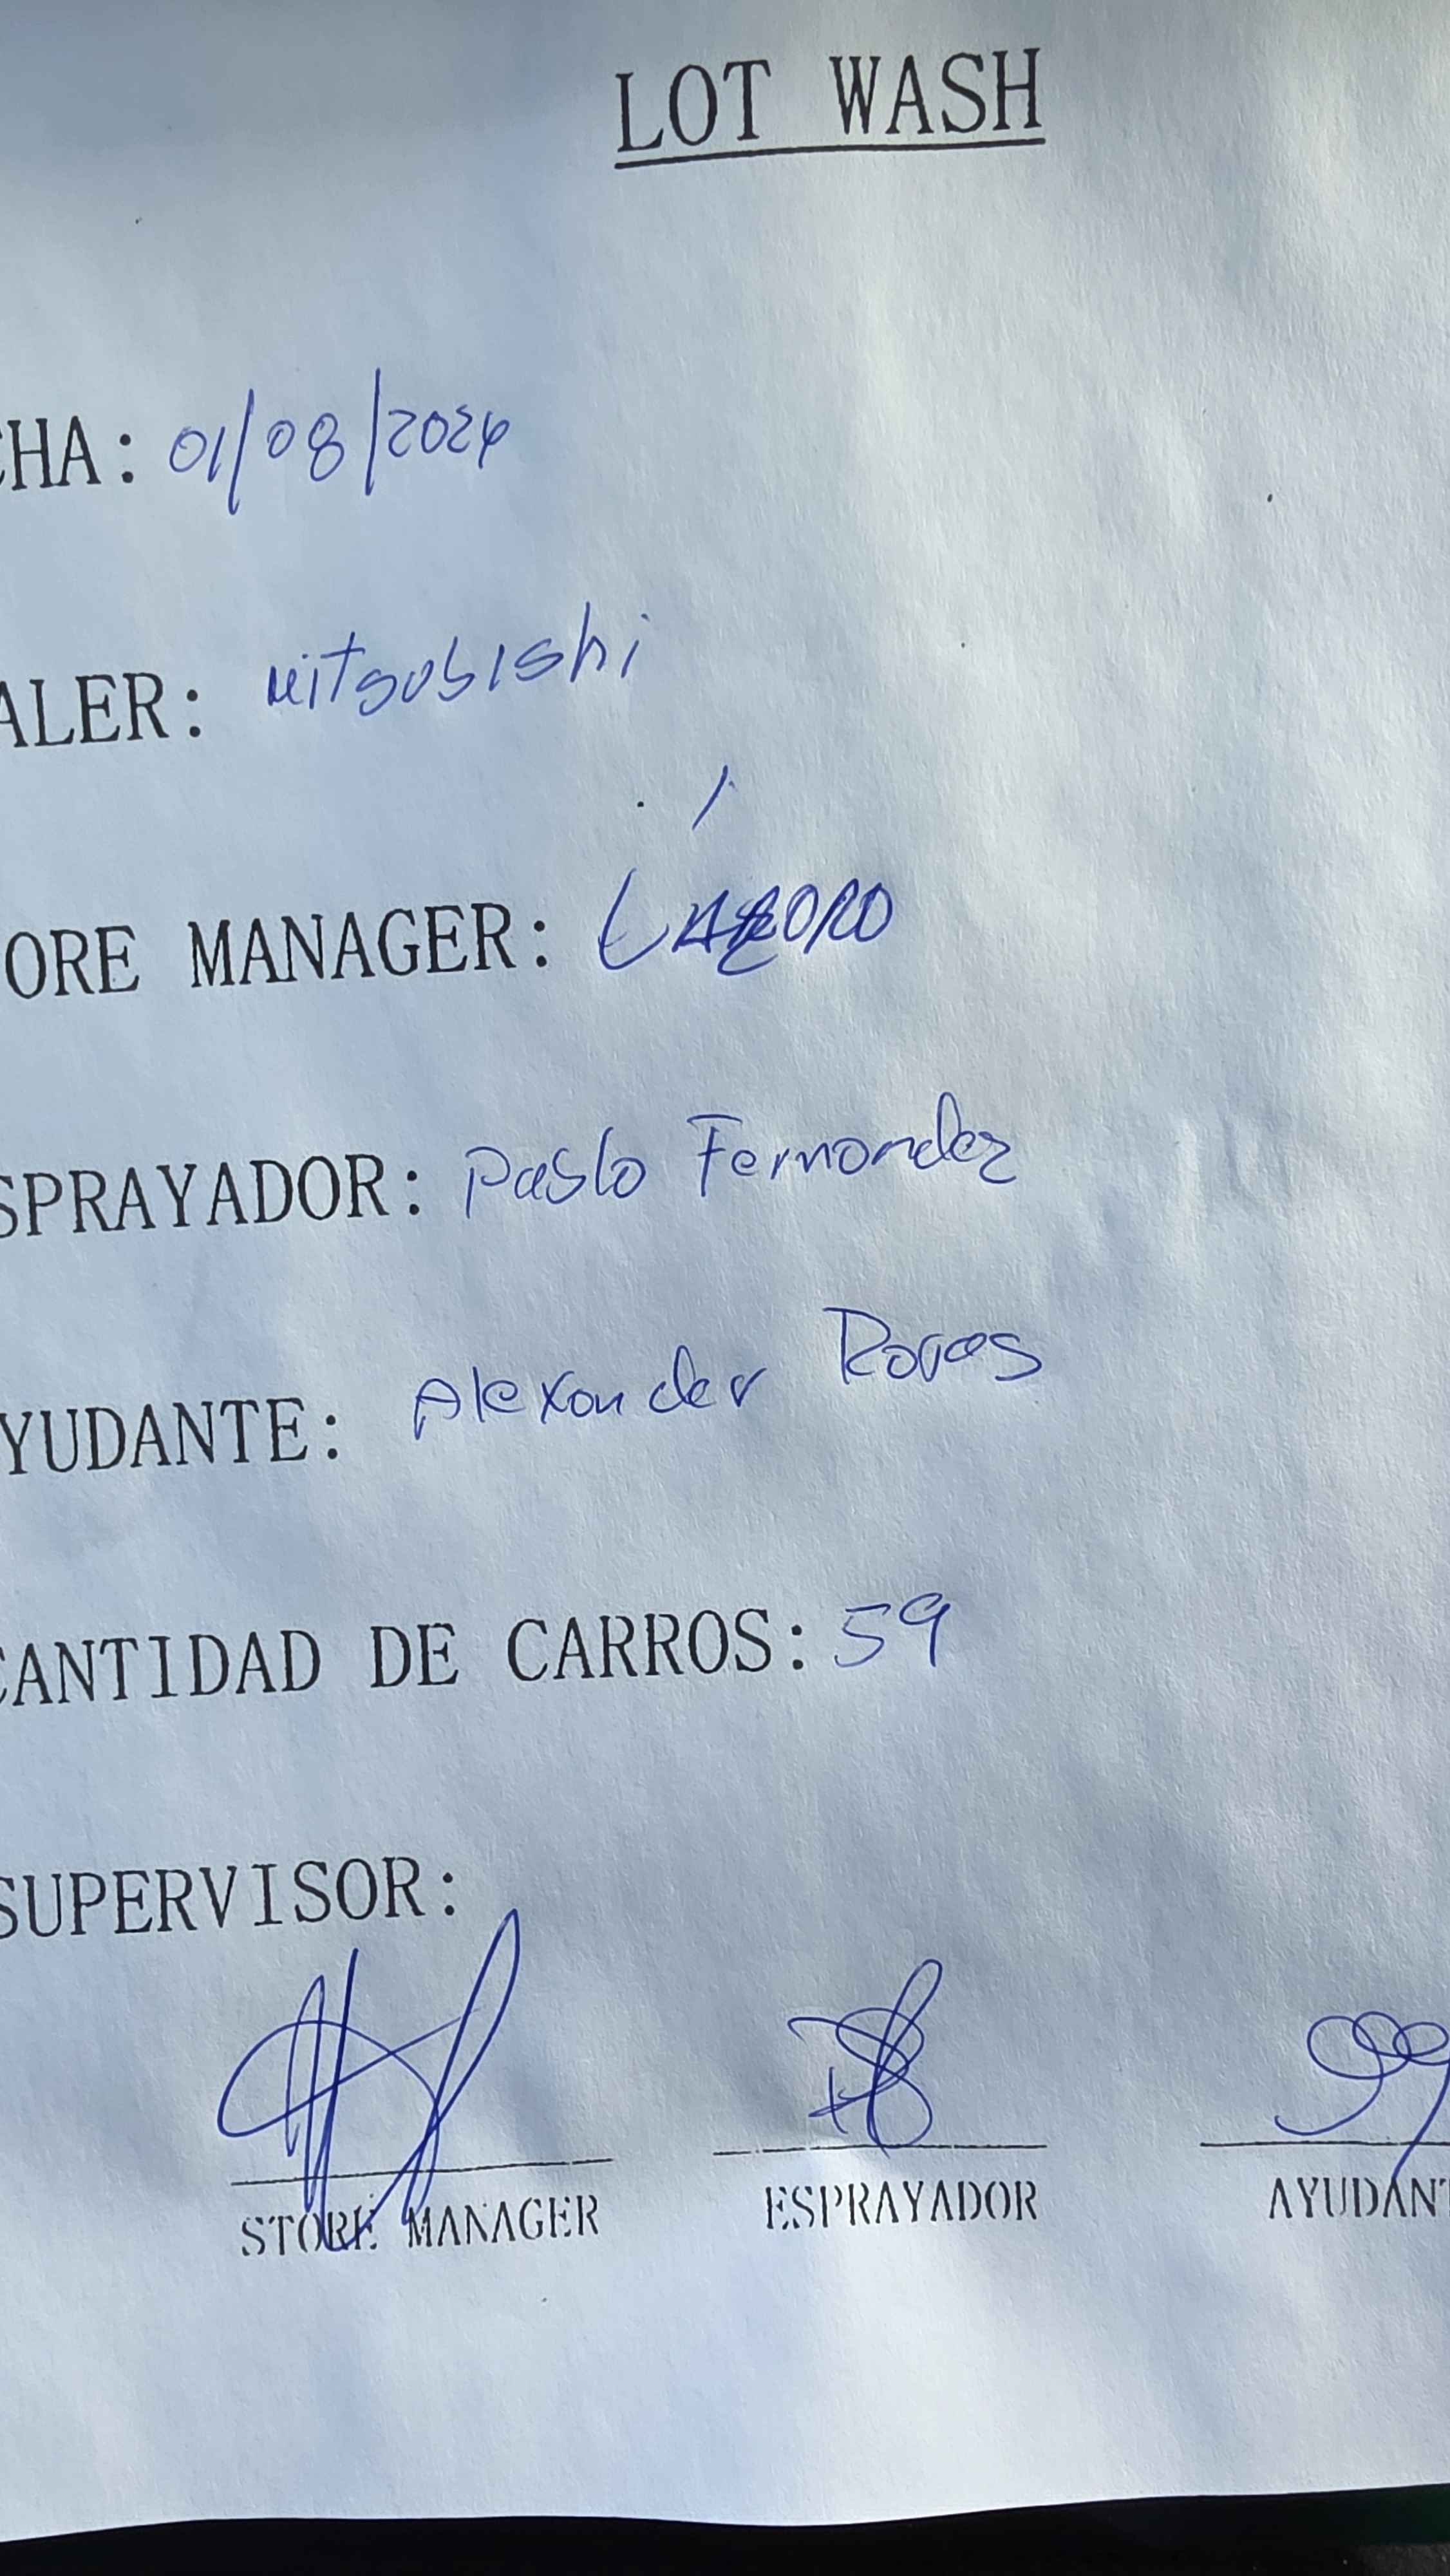 LOT WASH
CHA: 01/08/2024
ALER: Mitsubishi
ORE MANAGER: LAZARO
SPRAYADOR: Pablo Fernandez
YUDANTE: Alexander Rovas
CANTIDAD DE CARROS: 59
SUPERVISOR:
STORE MANAGER ESPRAYADOR AYUDANT